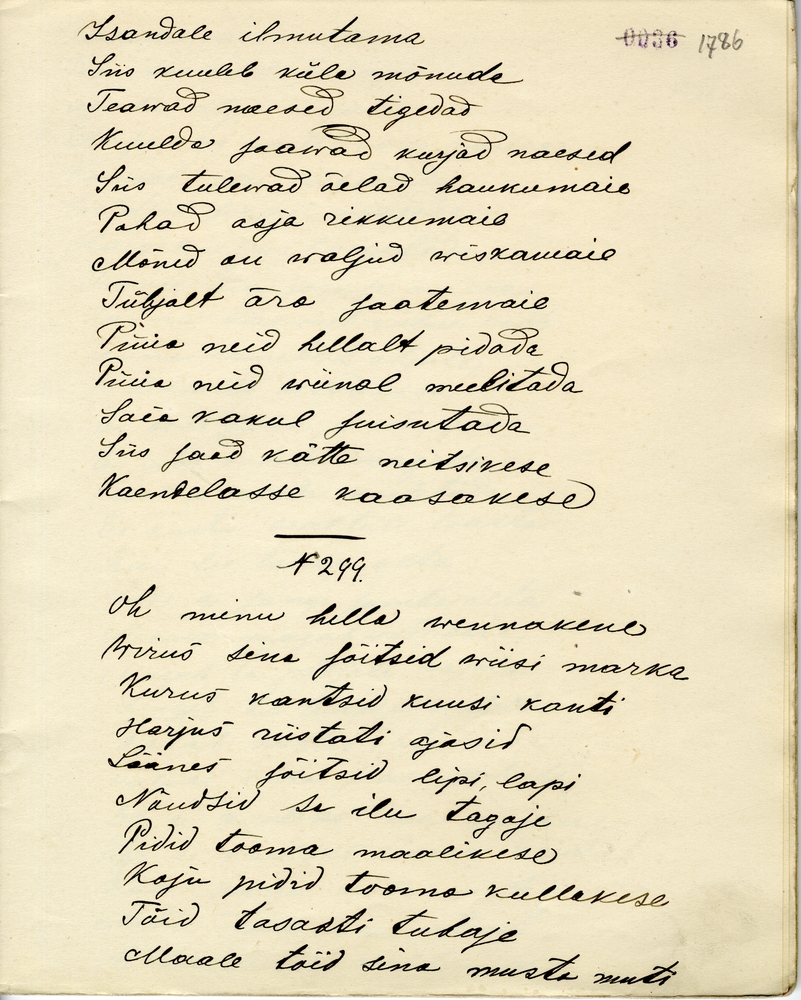 Isandale ilmutama
0036 1786
Siis kuuleb küla mõnuda
Teawad naesed tigedad
Kuulda saawad kurjad naesed
Siis tulewad õelad haukumaie
Pahad asja rikkumaie
Mõned on waljud wiskamaie
Tühjalt ära saatemaie
Püüa neid hellalt pidada
Püüa neid wiinal meelitada
Saia kakul suisutada
Siis saad kätte neitsikese
Kaendelasse kaasakese
N 299.
Oh minu hella wennakene
Wirus sina sõitsid wiisi marka
Kurus kantsid kuusi kanti
Harjus riistati ajasid
Läänes sõitsid lipi, lapi
Nõudsid sa ilu tagaje
Pidid tooma maalikese
Koju pidid tooma kullakese
Tõid tasasti tubaje
Maale tõid sina musta muti